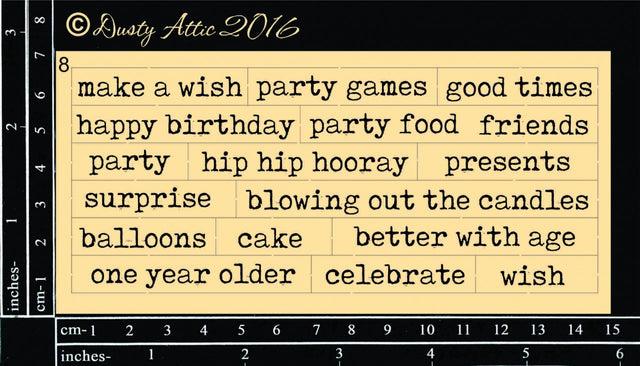 © Dusty Attic 2016
8
make a wish party games good times
happy birthday party food friends
party hip hip hooray presents
surprise blowing out the candles
balloons cake better with age
one year older celebrate wish
inches- 1 2 3
cm-1 2 3 4 5 6 7 8
cm-1 2 3 4 5 6 7 8 9 10 11 12 13 14 15
inches- 1 2 3 4 5 6